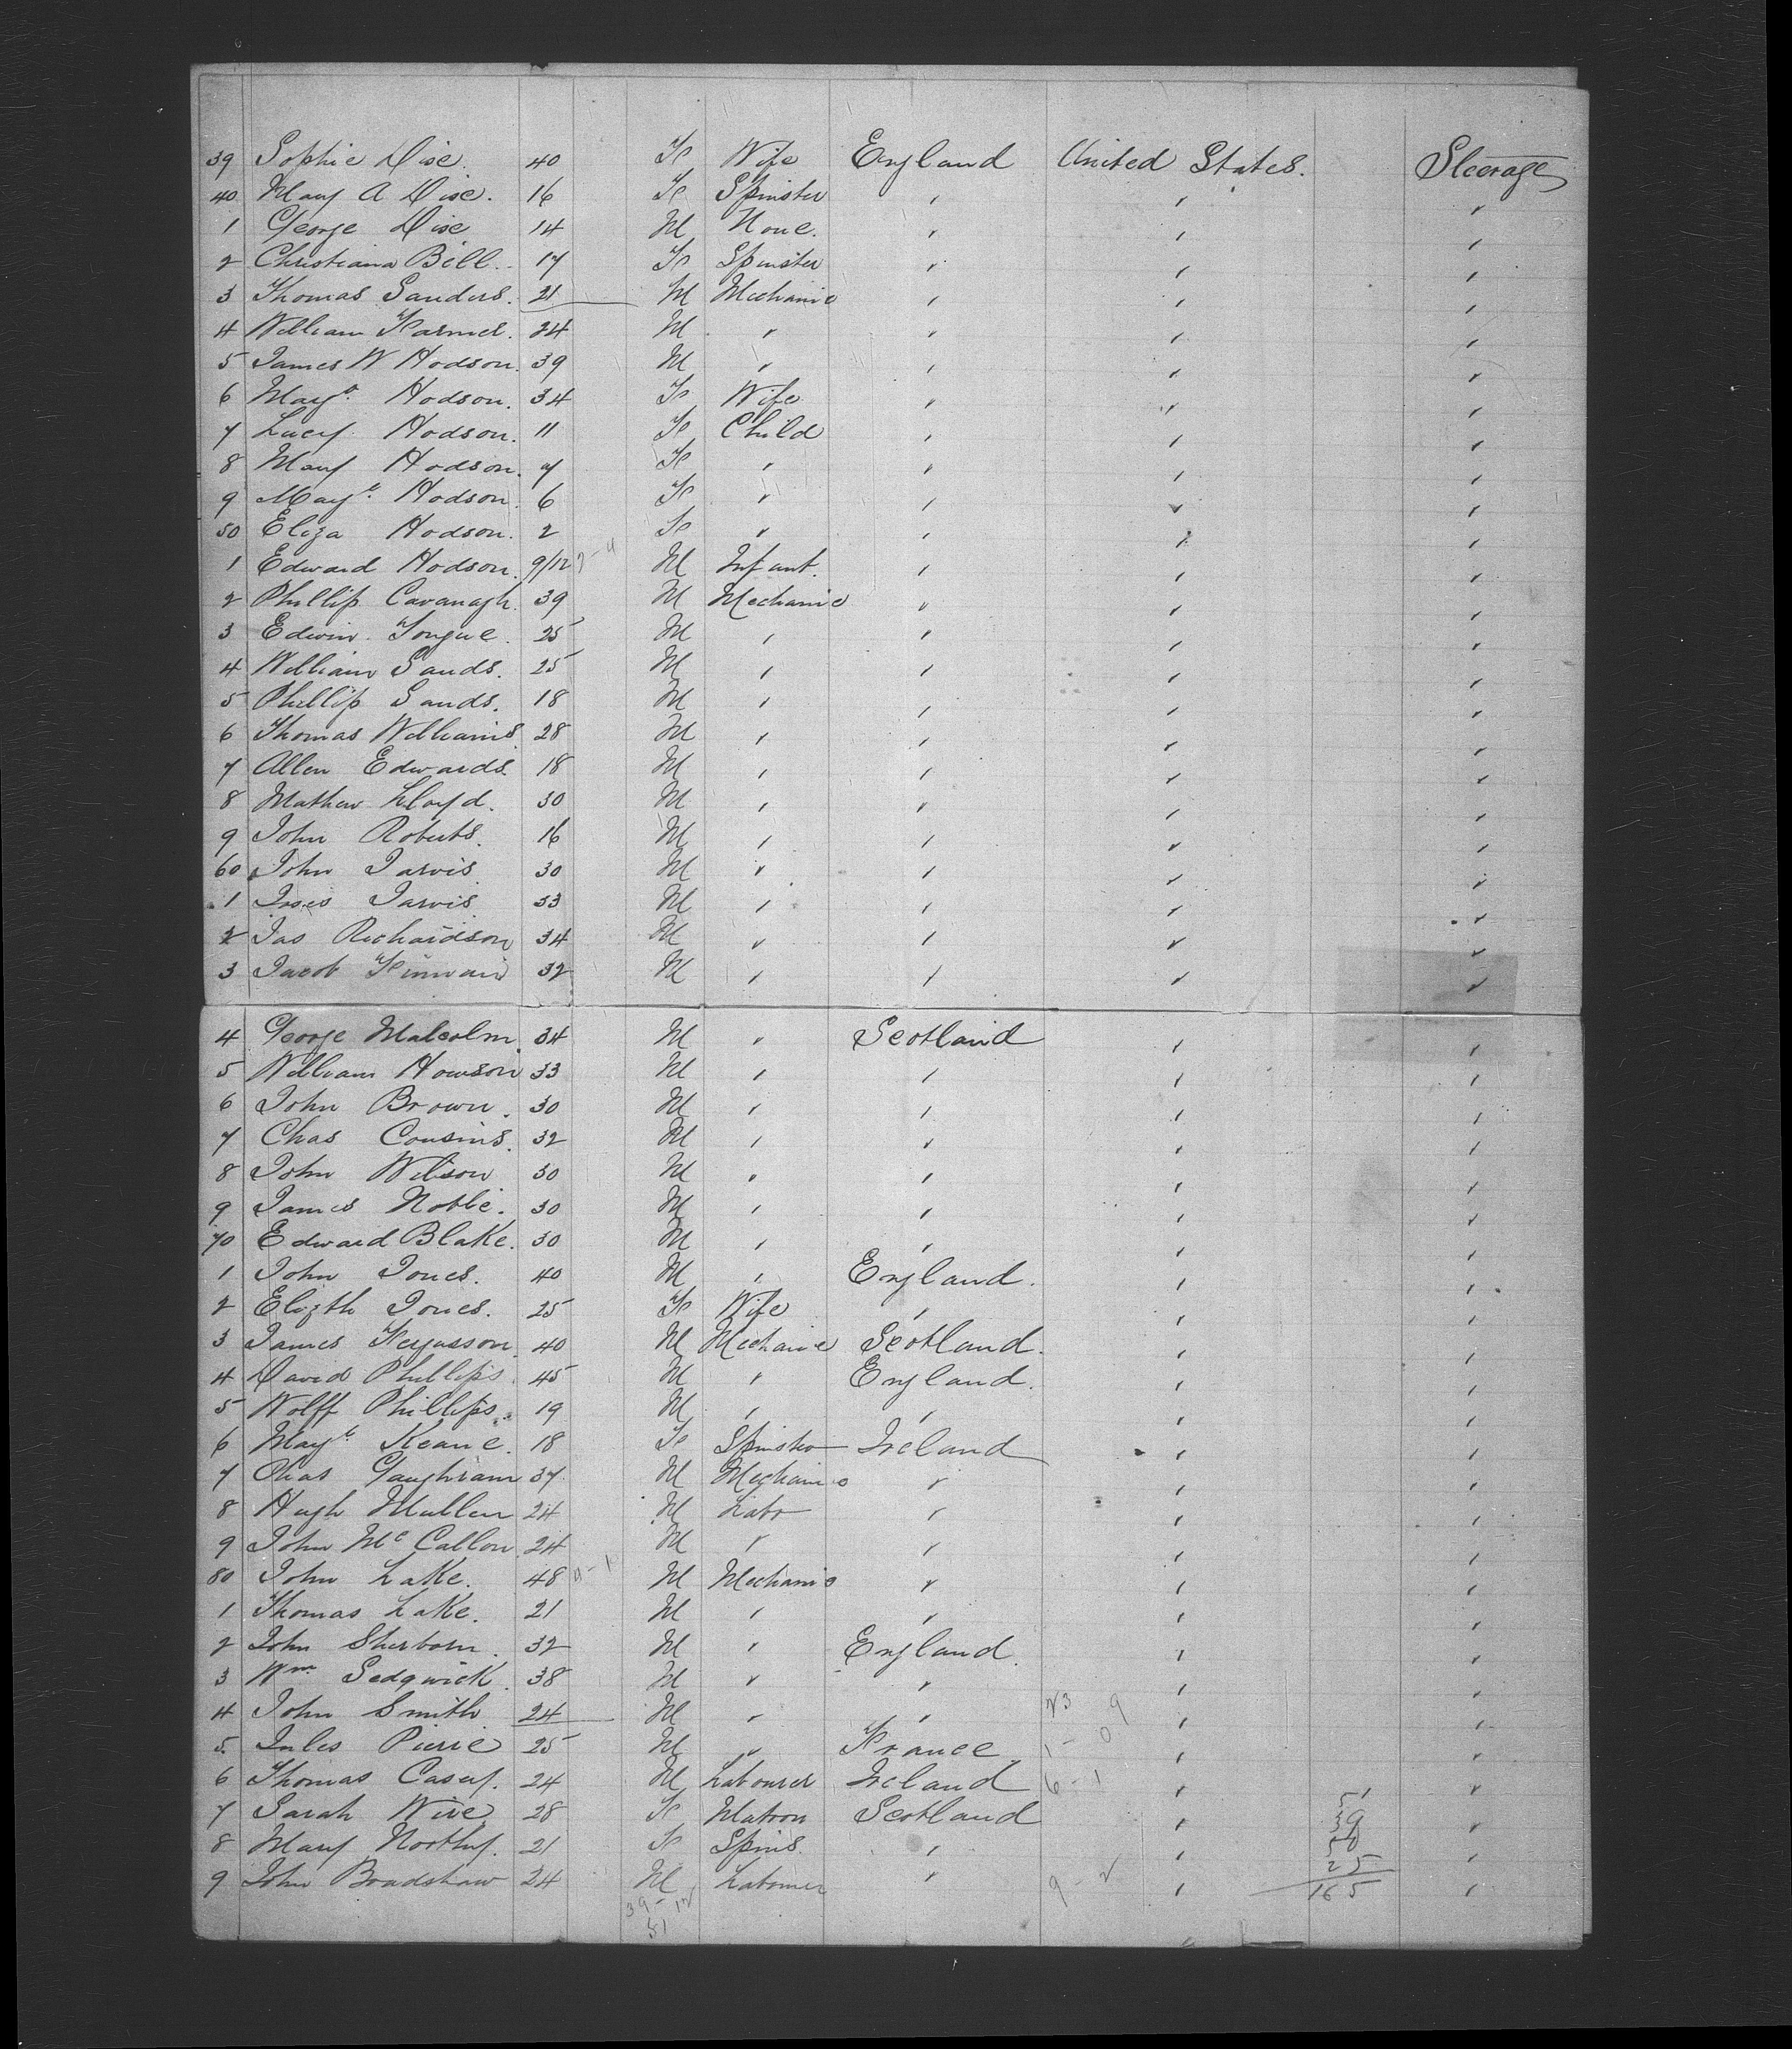 39 Sophie Dise. 40 Fe Wife England United States. Steerage
40 Mary A Dise. 16 Fe Spinster " " "
1 George Dise 14 M None. " " "
2 Christiana Bell. 17 Fe Spinster " " "
3 Thomas Sanders. 21 M Mechanic " " "
4 William Farmer. 24 M " " " "
5 James W Hodson. 39 M " " " "
6 Magt. Hodson. 34 Fe Wife " " "
7 Lucy Hodson. 11 Fe Child " " "
8 Mary Hodson. 7 Fe " " " "
9 Magt. Hodson. 6 Fe " " " "
50 Eliza Hodson. 2 Fe " " " "
1 Edward Hodson. 9/12 M Infant. " " "
2 Phillip Cavanagh. 39 M Mechanic " " "
3 Edwin Tongue. 25 M " " " "
4 William Sands. 25 M " " " "
5 Phillip Sands. 18 M " " " "
6 Thomas Williams 28 M " " " "
7 Allen Edwards. 18 M " " " "
8 Mathew Lloyd. 30 M " " " "
9 John Roberts. 16 M " " " "
60 John Jarvis 30 M " " " "
1 Jarvis 33 M " " " "
2 Jas Richardson 34 M " " " "
3 Jacob 32 M " " " "
4 George Malcolm. 34 M " Scotland " "
5 William Howson 33 M " " " "
6 John Brown. 30 M " " " "
7 Chas Cousins. 32 M " " " "
8 John Wilson 30 M " " " "
9 James Noble. 30 M " " " "
70 Edward Blake. 30 M " " " "
1 John Jones. 40 M " England. " "
2 Elizth Jones. 25 Fe Wife " " "
3 James Fergusson. 40 M Mechanic Scotland. " "
4 David Phillips. 45 M " England. " "
5 Wolff Phillips. 19 M " " " "
6 Magt. Keane. 18 Fe Spinster Ireland " "
7 Chas Gaughram 37 M Mechanic " " "
8 Hugh Mullen 24 M Labr " " "
9 John Mc Callon 24 M " " " "
80 John Lake. 48 M Mechanic " " "
1 Thomas Lake. 21 M " " " "
2 John Sherborn. 32 M " England. " "
3 Wm Sedgwick. 38 M " " " "
4 John Smith 24 M " " " "
5 Jules Pierie 25 M " France " "
6 Thomas Casey. 24 M Labourer Ireland 6-1 " "
7 Sarah Wire 28 Fe Matron Scotland " "
8 Mary Northy. 21 Fe Spins. " " "
9 John Bradshaw 24 M Labourer " 9-2 " 165 "
39-12
51